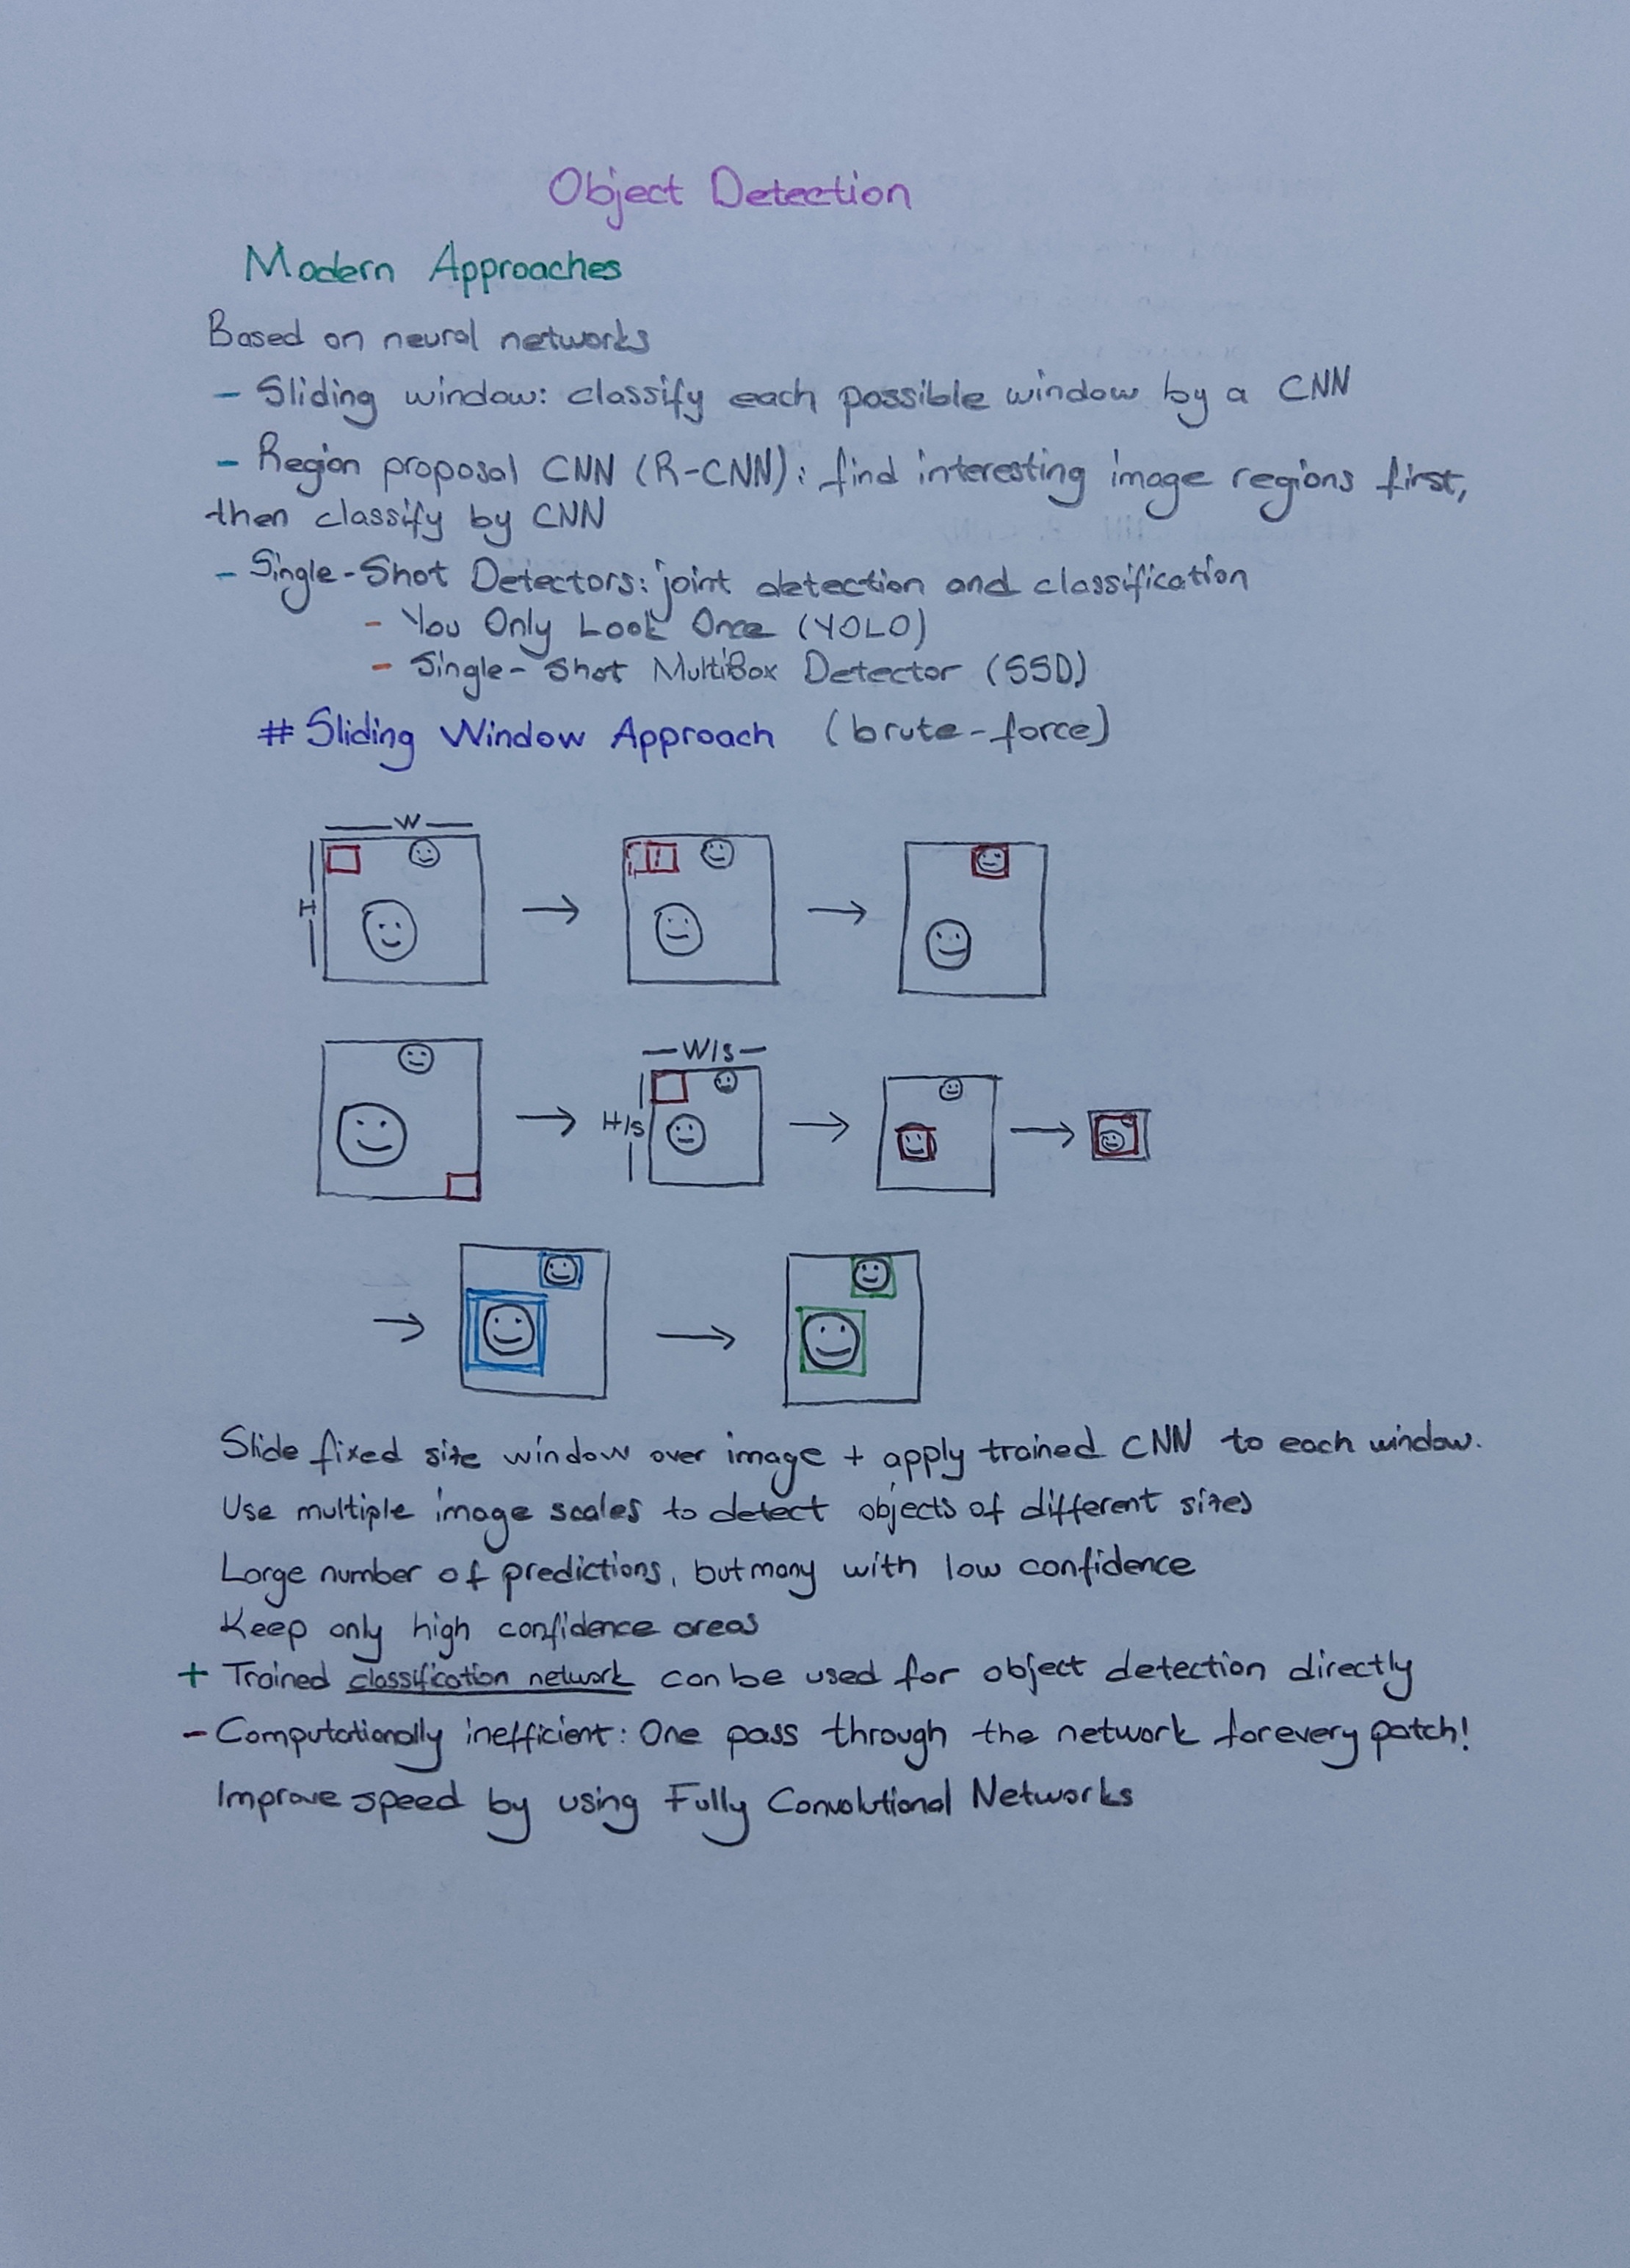 Object Detection
Modern Approaches
Based on neural networks
- Sliding window: classify each possible window by a CNN
- Region proposal CNN (R-CNN): find interesting image regions first,
then classify by CNN
- Single-Shot Detectors: joint detection and classification
- You Only Look Once (YOLO)
- Single-Shot MultiBox Detector (SSD)
# Sliding Window Approach (brute-force)
W
H
W/s
H/s
Slide fixed size window over image + apply trained CNN to each window.
Use multiple image scales to detect objects of different sizes
Large number of predictions, but many with low confidence
Keep only high confidence areas
+ Trained classification network can be used for object detection directly
- Computationally inefficient: One pass through the network for every patch!
Improve speed by using Fully Convolutional Networks